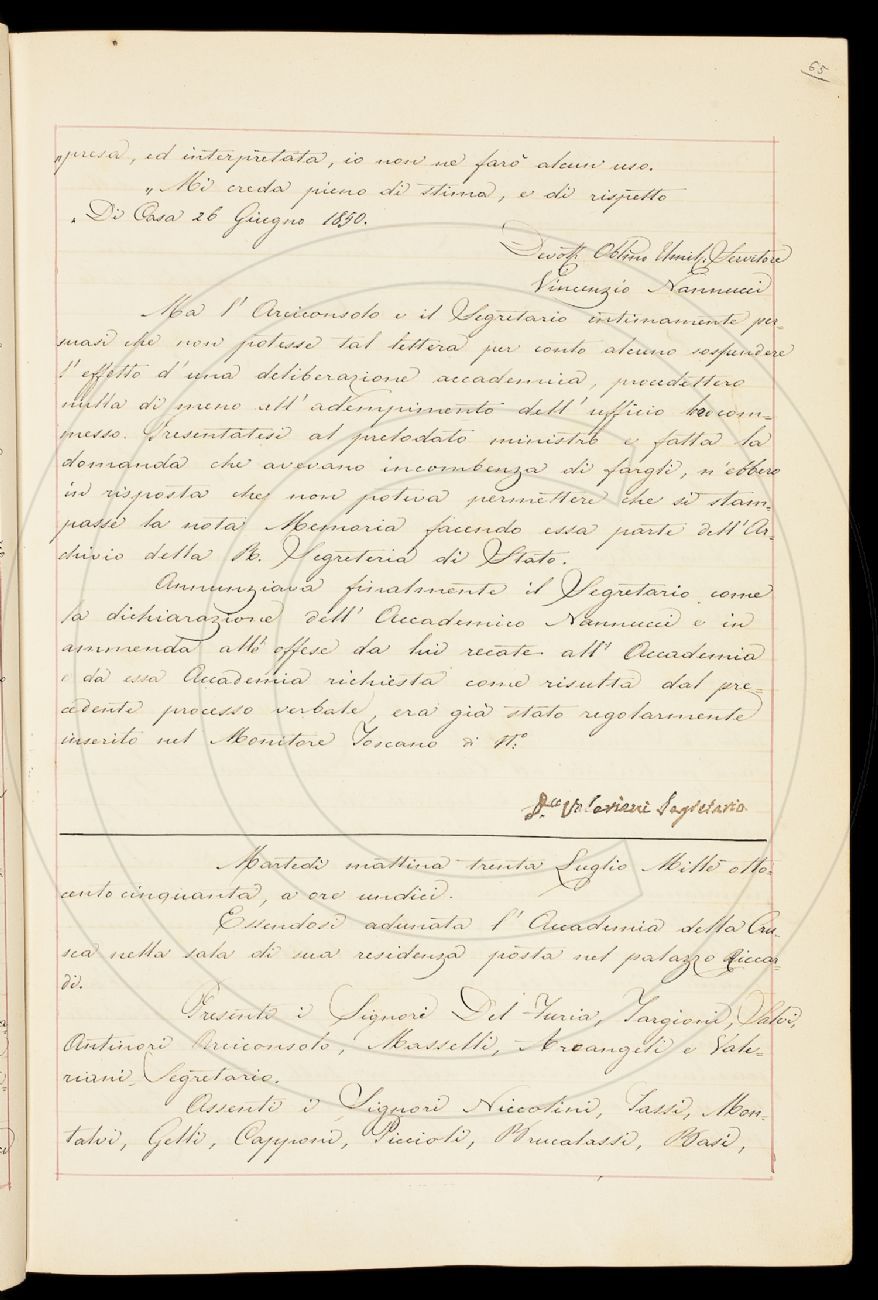 65
„presa, ed interpretata, io non ne farò alcun uso.
„Mi creda pieno di stima, e di rispetto
„Di Casa 26 Giugno 1850.
Devot. Obblmo Umil. Servitore
Vincenzio Nannucci
Ma l' Arciconsolo e il Segretario intimamente per=
suasi che non potesse tal lettera per conto alcuno sospendere
l' effetto d' una deliberazione accademica, procedettero
nulla di meno all' adempimento dell' ufficio loro com=
messo. Presentatisi al prelodato ministro e fatta la
domanda che avevano incombenza di fargli, n' ebbero
in risposta che non poteva permettere che si stam=
passe la nota Memoria facendo essa parte dell' Ar=
chivio della R. Segreteria di Stato.
Annunziava finalmente il Segretario come
la dichiarazione dell' Accademico Nannucci e in
ammenda alle offese da lui recate all' Accademia
e da essa Accademia richiesta come risulta dal pre=
cedente processo verbale, era già stato regolarmente
inserito nel Monitore Toscano di N.º
D.re Valeriani Segretario
Martedì mattina trenta Luglio Mille otto=
cento cinquanta, a ore undici.
Essendosi adunata l' Accademia della Cru=
sca nella sala di sua residenza posta nel palazzo Riccar=
di.
Presenti i Signori Del-Furia, Targioni, Salvi,
Antinori Arciconsolo, Masselli, Arcangeli e Vale=
riani, Segretario.
Assenti i Signori Niccolini, Tassi, Mon=
talvi, Gelli, Capponi, Piccioli, Brucalassi, Basi,